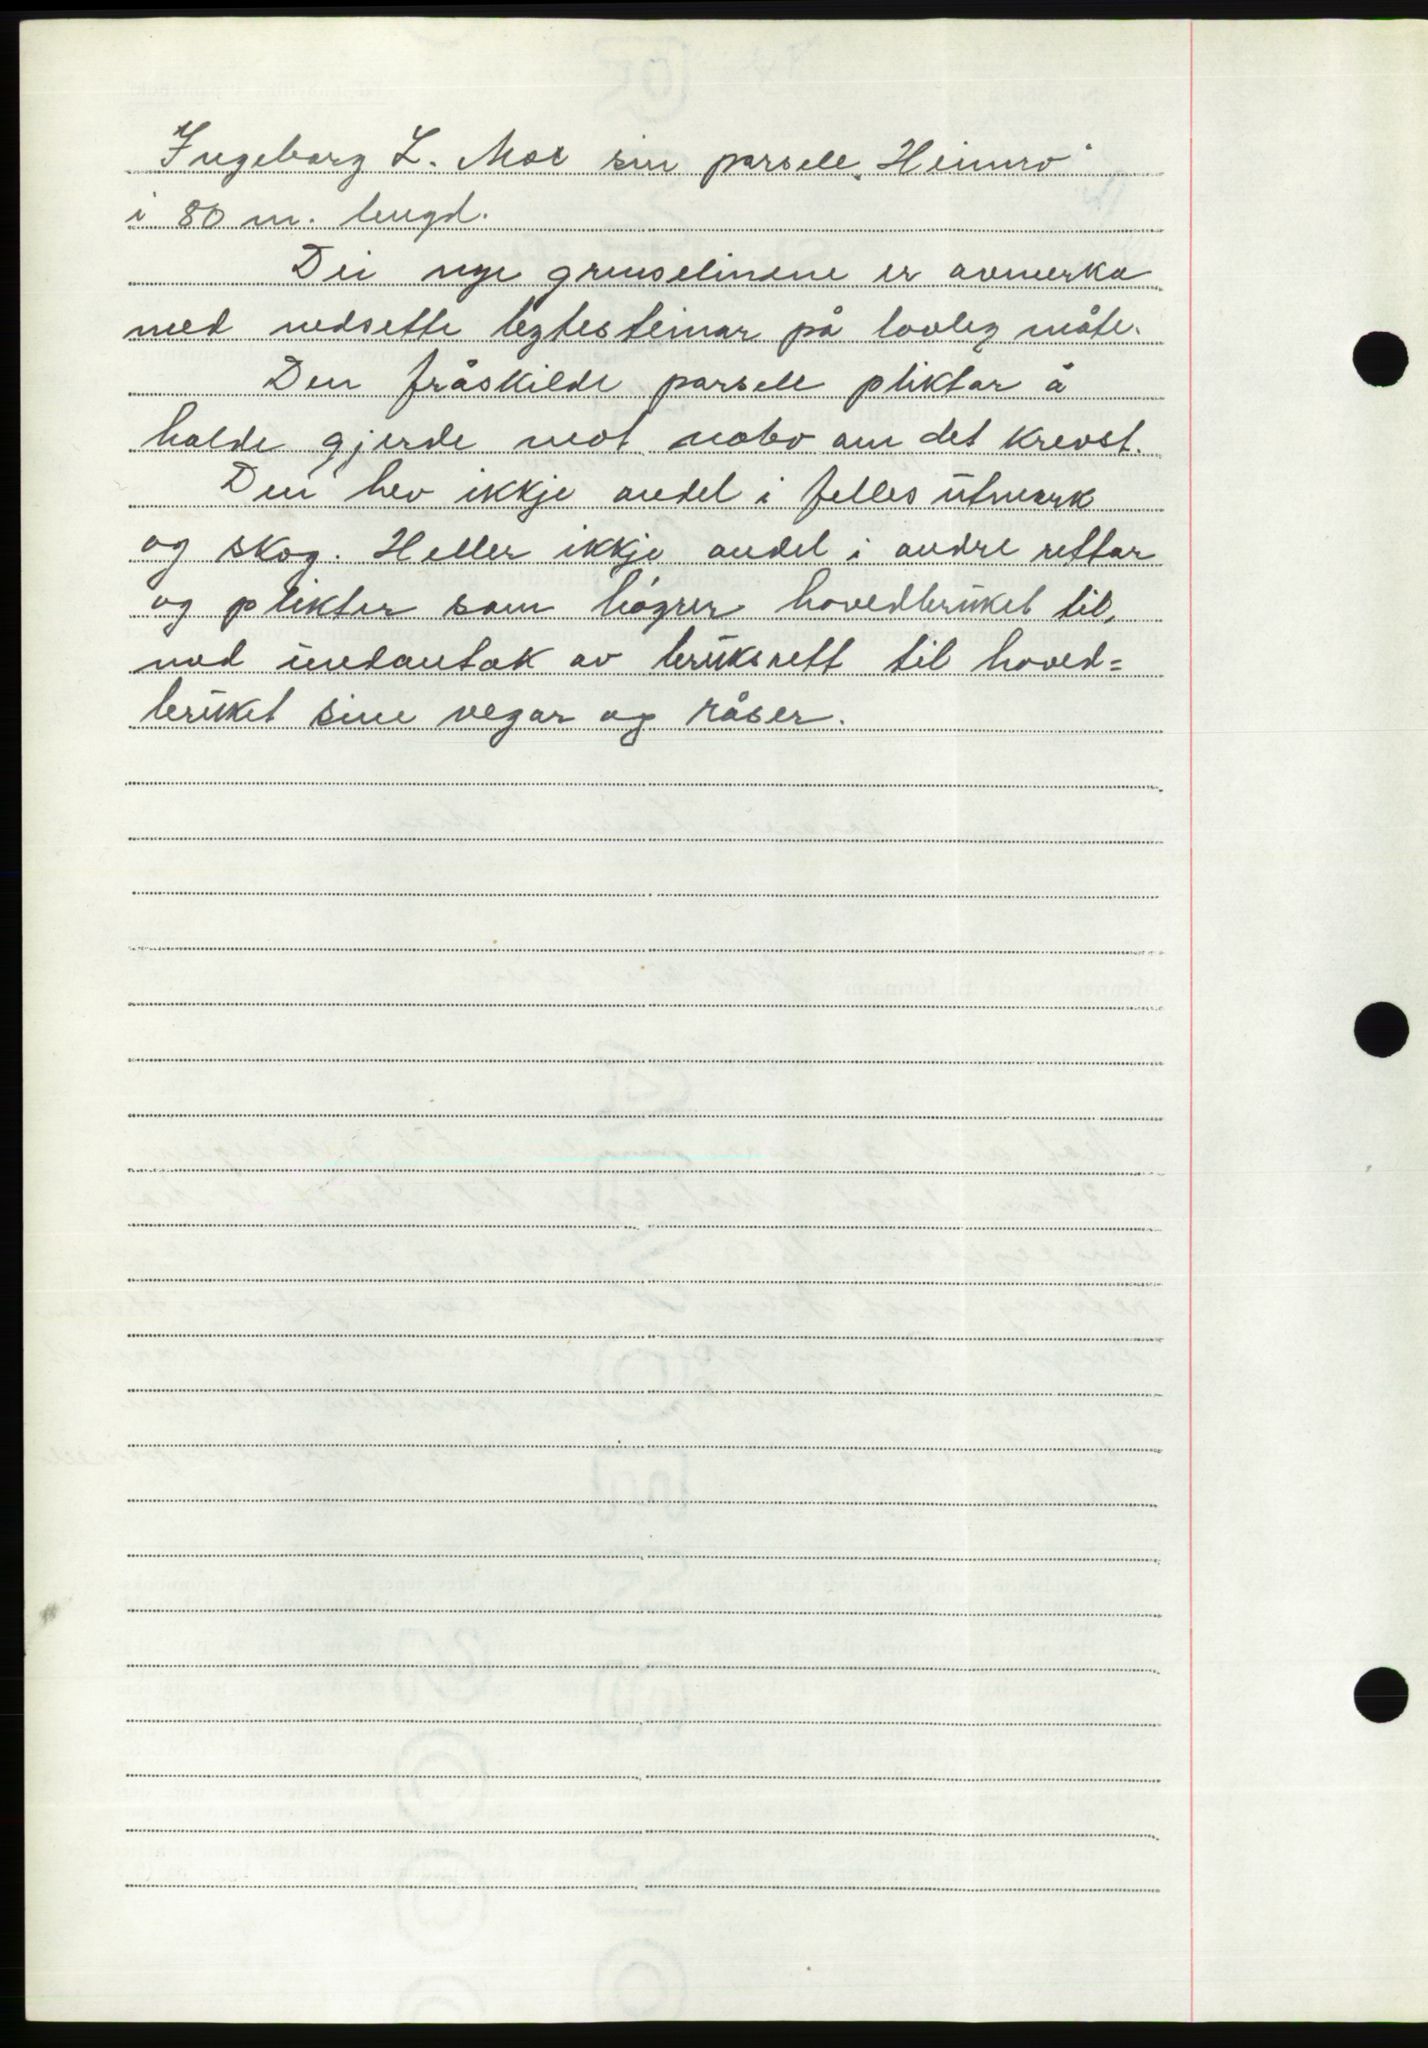 Ingeborg L. Moe sin parsell „Heimro"
i 80 m. lengd.
Dei nye grenselinene er avmerka
med nedsette legtesteinar på lovleg måte.
Den fråskilde parsell pliktar å
halde gjerde mot nabo om det krevst.
Den hev ikkje andel i felles utmark
og skog. Heller ikkje andel i andre rettar
og plikter som høgrer hovedbruket til,
med undantak av bruksrett til hoved=
bruket sine vegar og råser.